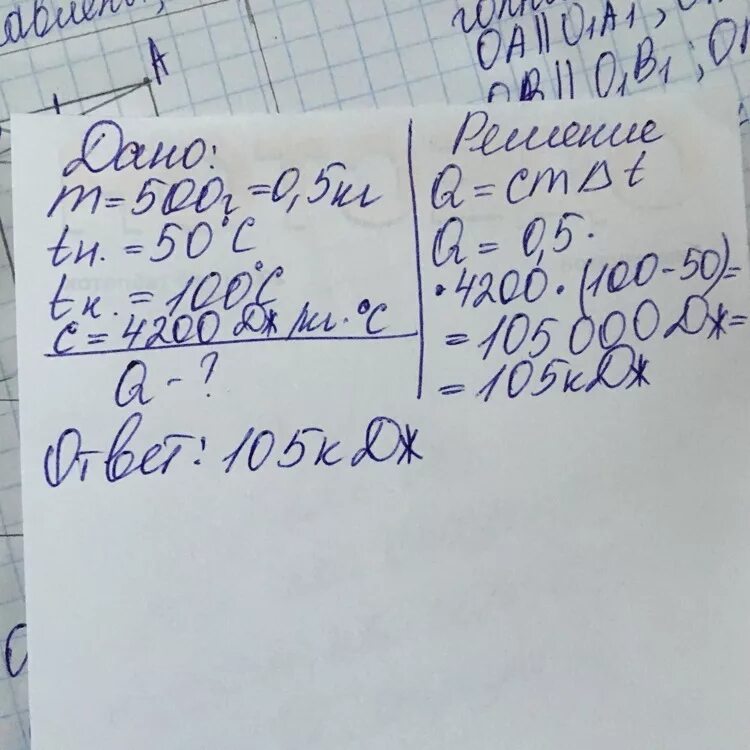 A
OA || O₁A₁ ;
OB || O₁B₁ ;
Дано:
m = 500г = 0,5 кг
tн. = 50°C
tк. = 100°C
c = 4200 Дж/кг·°C
Q - ?
Решение
Q = cmΔt
Q = 0,5·
·4200·(100-50)=
= 105 000 Дж=
= 105 кДж
Ответ: 105 кДж